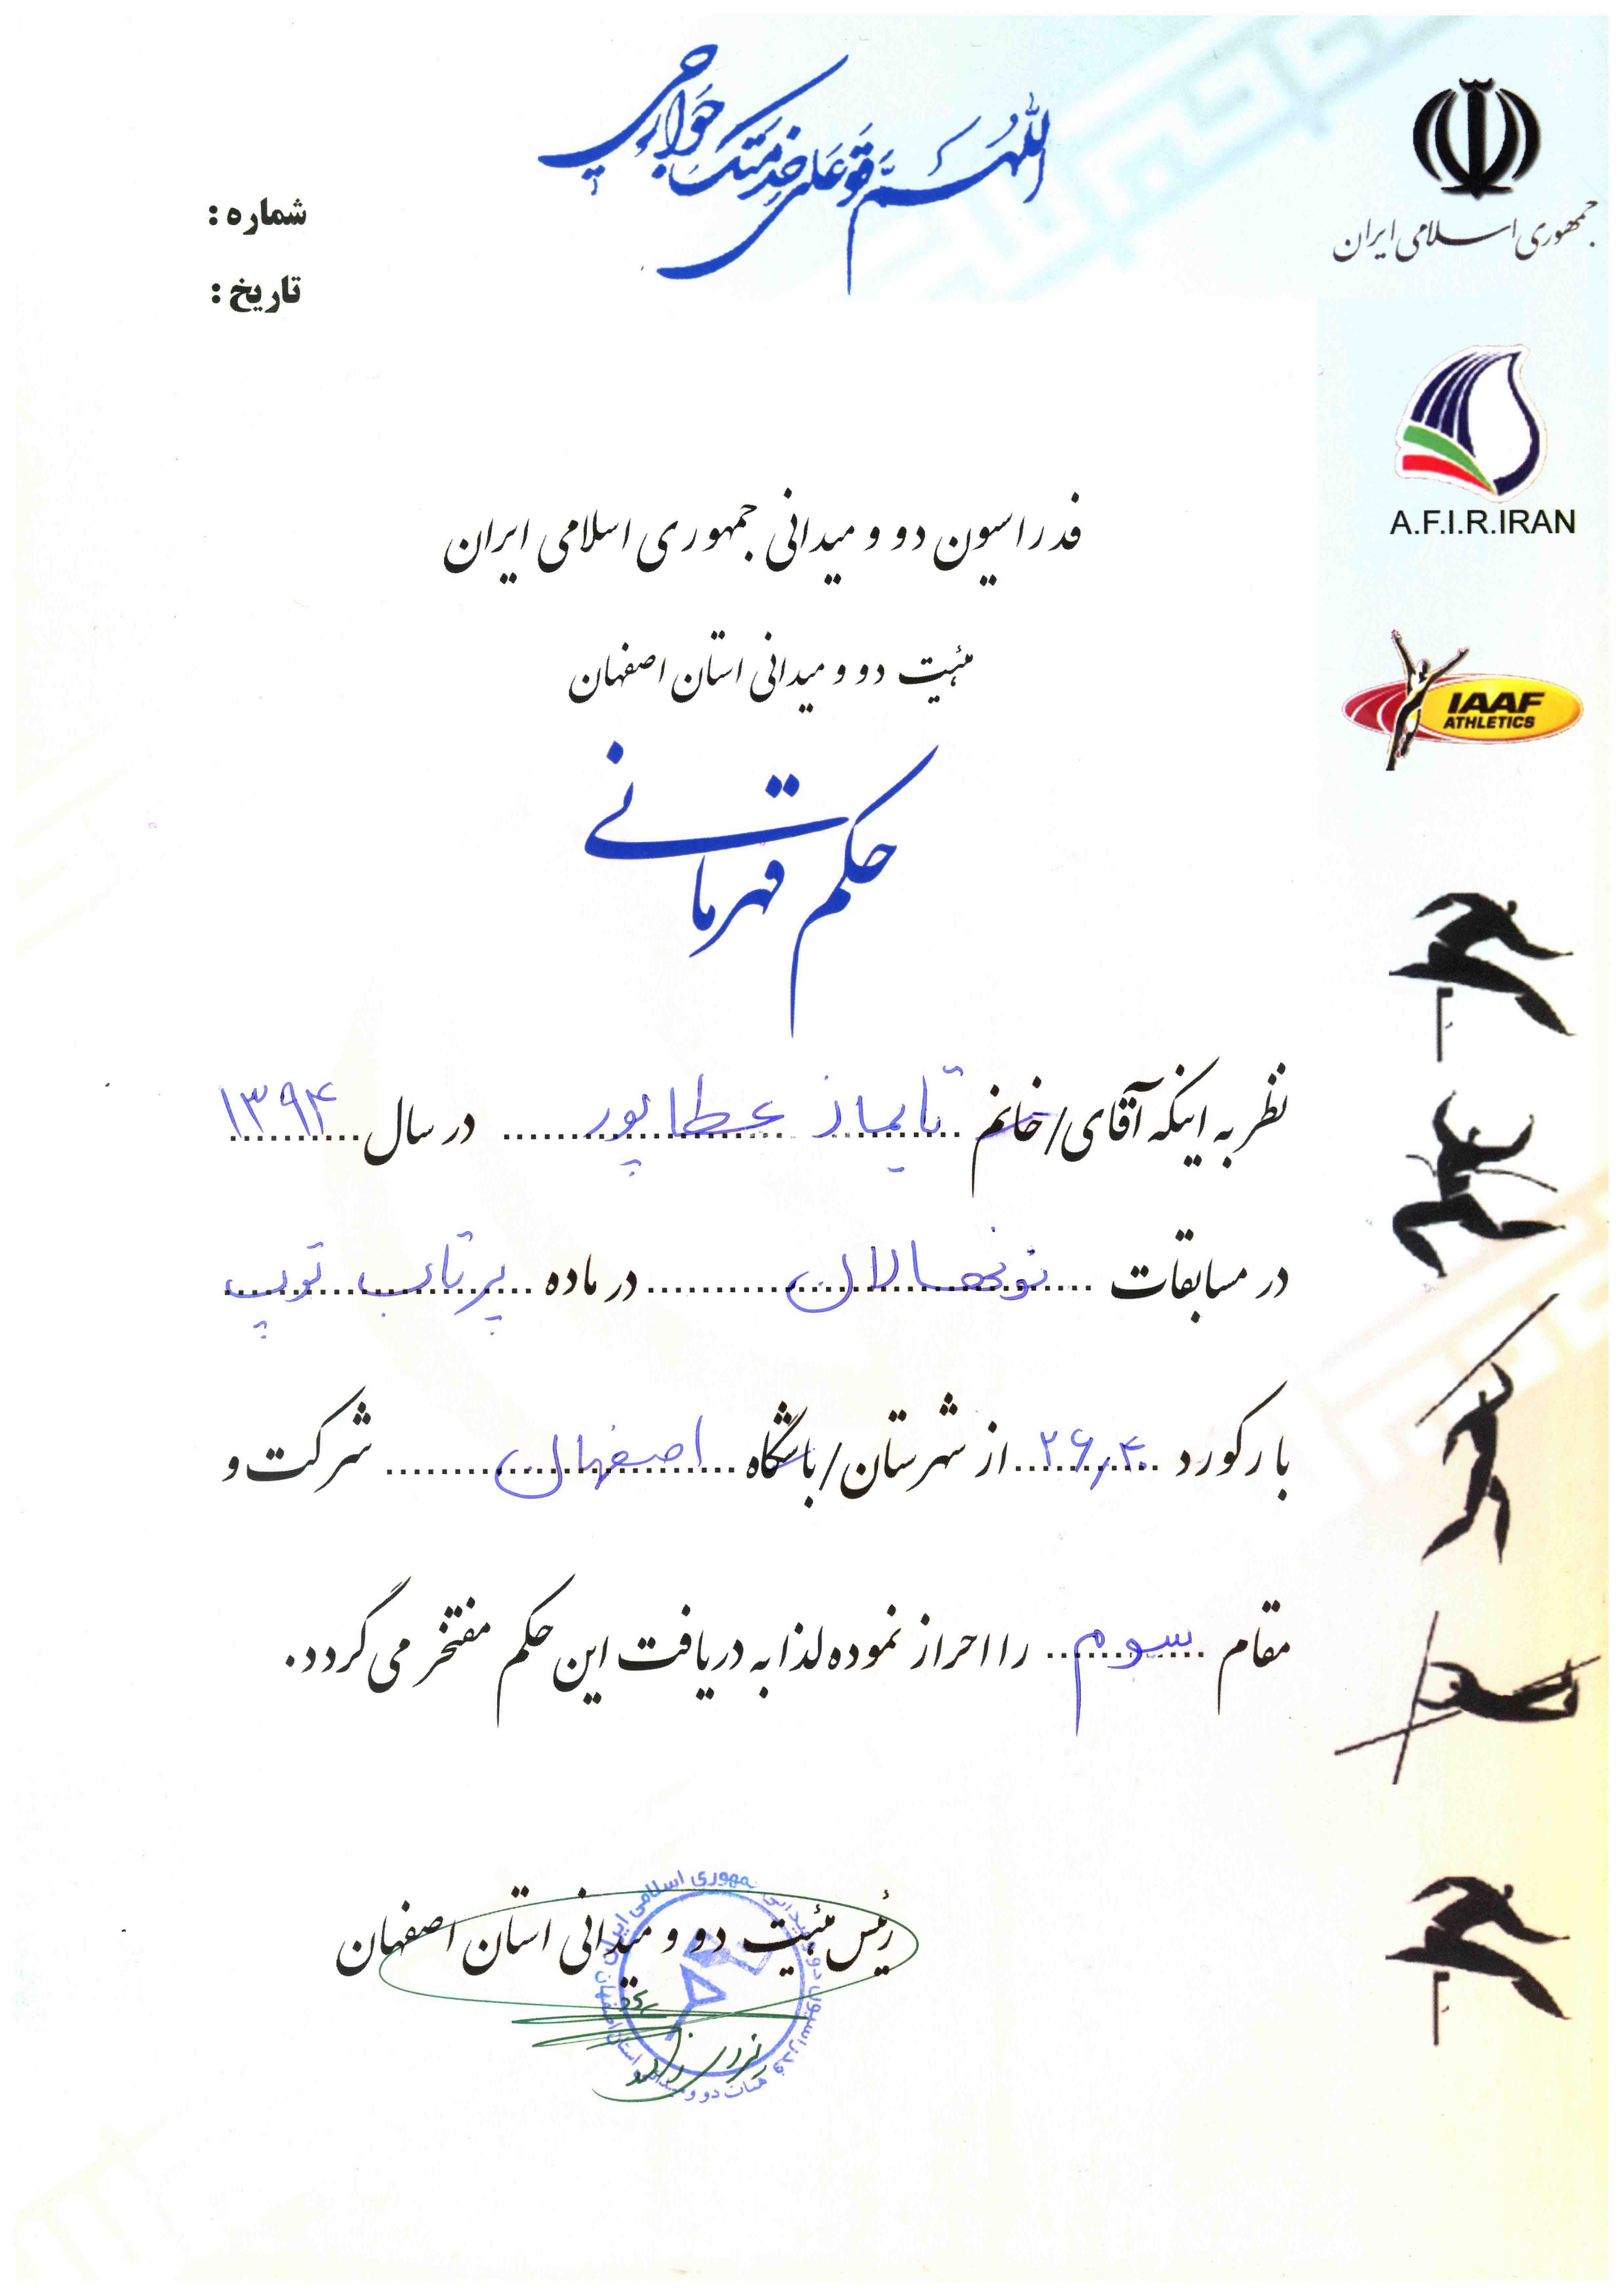 اللهم قو علی خدمتک جوارحی
جمهوری اسلامی ایران
شماره :
تاریخ :
A.F.I.R.IRAN
IAAF
ATHLETICS
فدراسیون دو و میدانی جمهوری اسلامی ایران
هیئت دو و میدانی استان اصفهان
حکم قهرمانی
نظر به اینکه آقای/خانم تایماز عطاپور در سال ۱۳۹۴
در مسابقات نونهالان در ماده پرتاب توپ
با رکورد ۲۶٫۴۰ از شهرستان/باشگاه اصفهان شرکت و
مقام سوم را احراز نموده لذا به دریافت این حکم مفتخر می گردد.
رئیس هیئت دو و میدانی استان اصفهان
فدراسیون دو و میدانی جمهوری اسلامی ایران
هیات دو و میدانی استان اصفهان